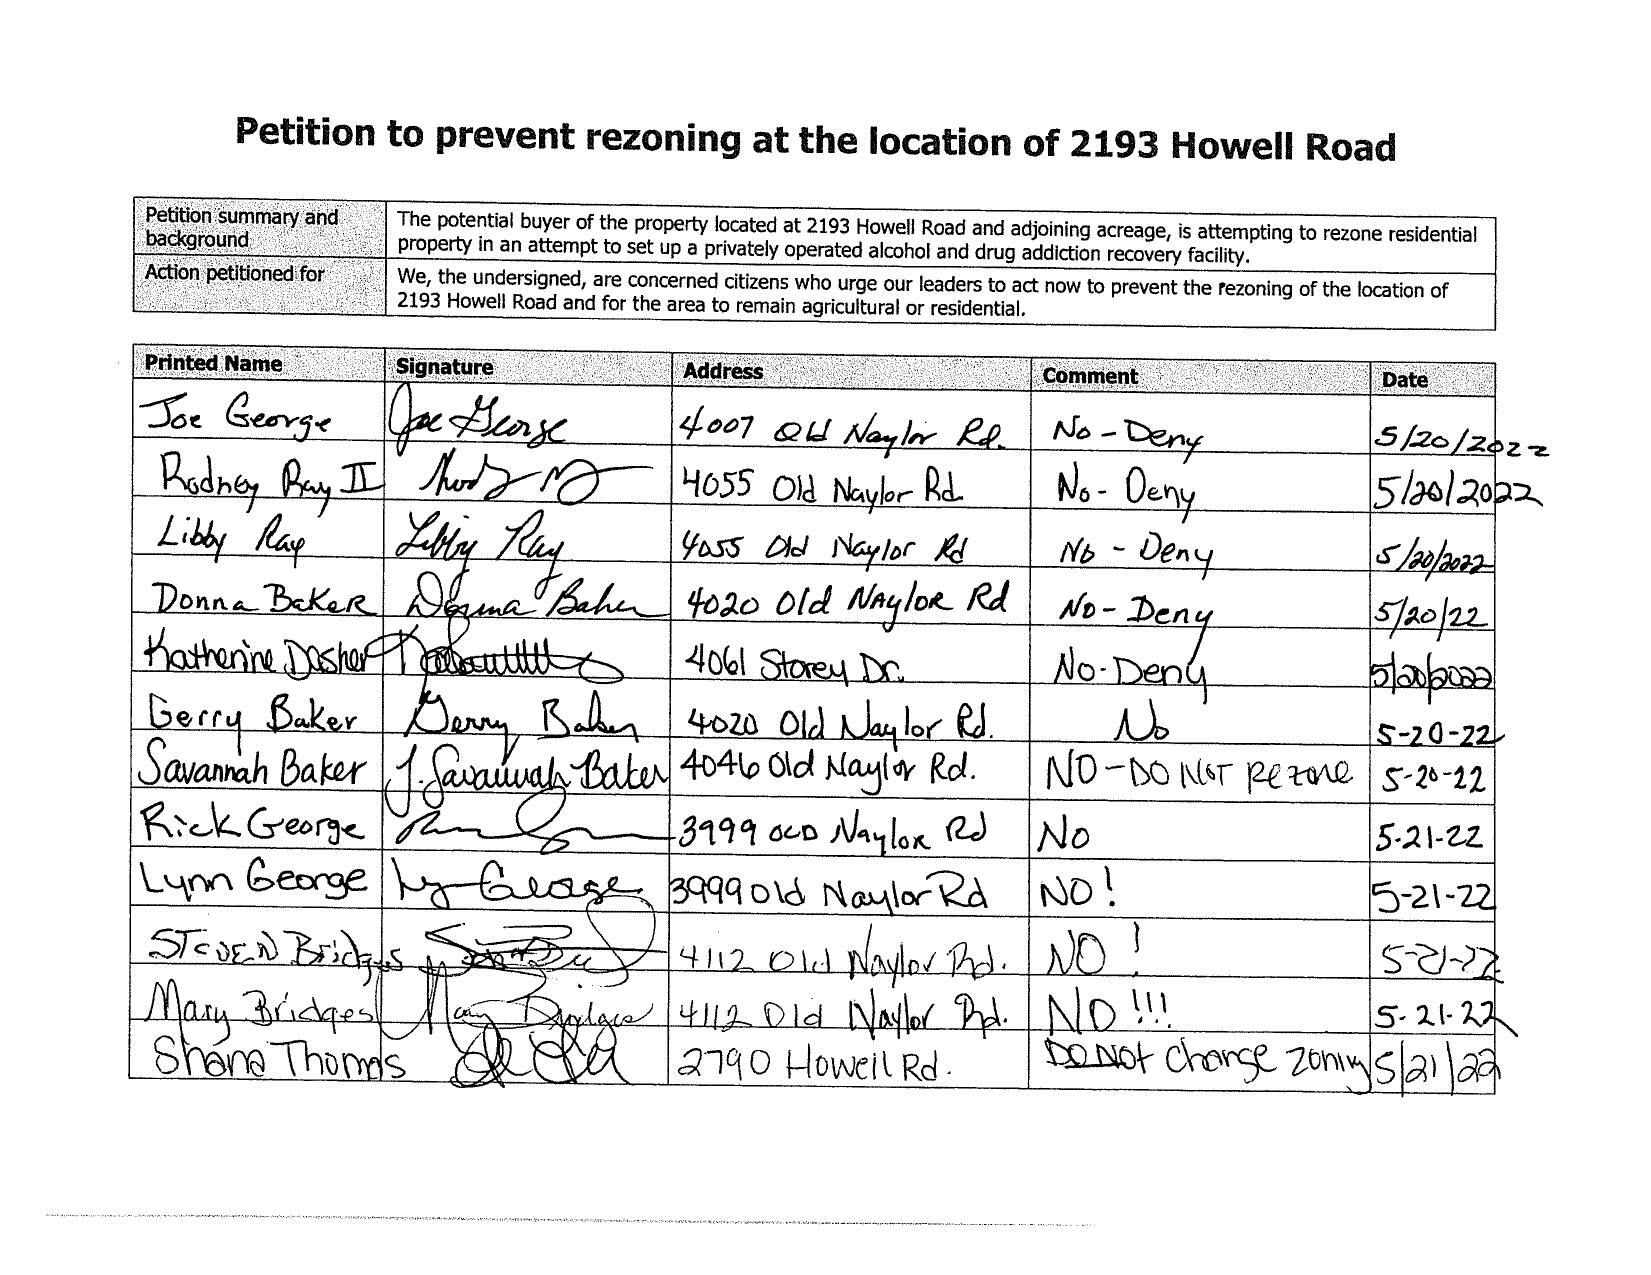 Petition to prevent rezoning at the location of 2193 Howell Road
Petition summary and background
The potential buyer of the property located at 2193 Howell Road and adjoining acreage, is attempting to rezone residential
property in an attempt to set up a privately operated alcohol and drug addiction recovery facility.
Action petitioned for
We, the undersigned, are concerned citizens who urge our leaders to act now to prevent the rezoning of the location of
2193 Howell Road and for the area to remain agricultural or residential.
Printed Name Signature Address Comment Date
Joe George Joe George 4007 Old Naylor Rd. No - Deny 5/20/2022
Rodney Ray II 4055 Old Naylor Rd No - Deny 5/20/2022
Libby Ray Libby Ray 4055 Old Naylor Rd No - Deny 5/20/2022
Donna Baker Donna Baker 4020 Old Naylor Rd No - Deny 5/20/22
Katherine Dasher 4061 Storey Dr. No - Deny 5/20/2022
Gerry Baker Gerry Baker 4020 Old Naylor Rd. No 5-20-22
Savannah Baker J. Savannah Baker 4046 Old Naylor Rd. NO - DO NOT rezone 5-20-22
Rick George 3999 OLD Naylor Rd No 5-21-22
Lynn George Ly George 3999 Old Naylor Rd NO! 5-21-22
STEVEN Bridges 4112 Old Naylor Rd. NO! 5-21-22
Mary Bridges Mary Bridges 4112 Old Naylor Rd. NO!!! 5-21-22
Shana Thomas 2790 Howell Rd. DO NOT change zoning 5/21/22